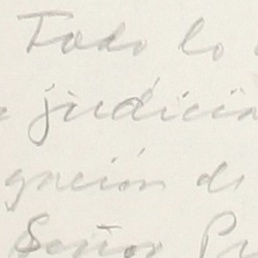 Todo lo
judicia
gnación de
Señor Pr